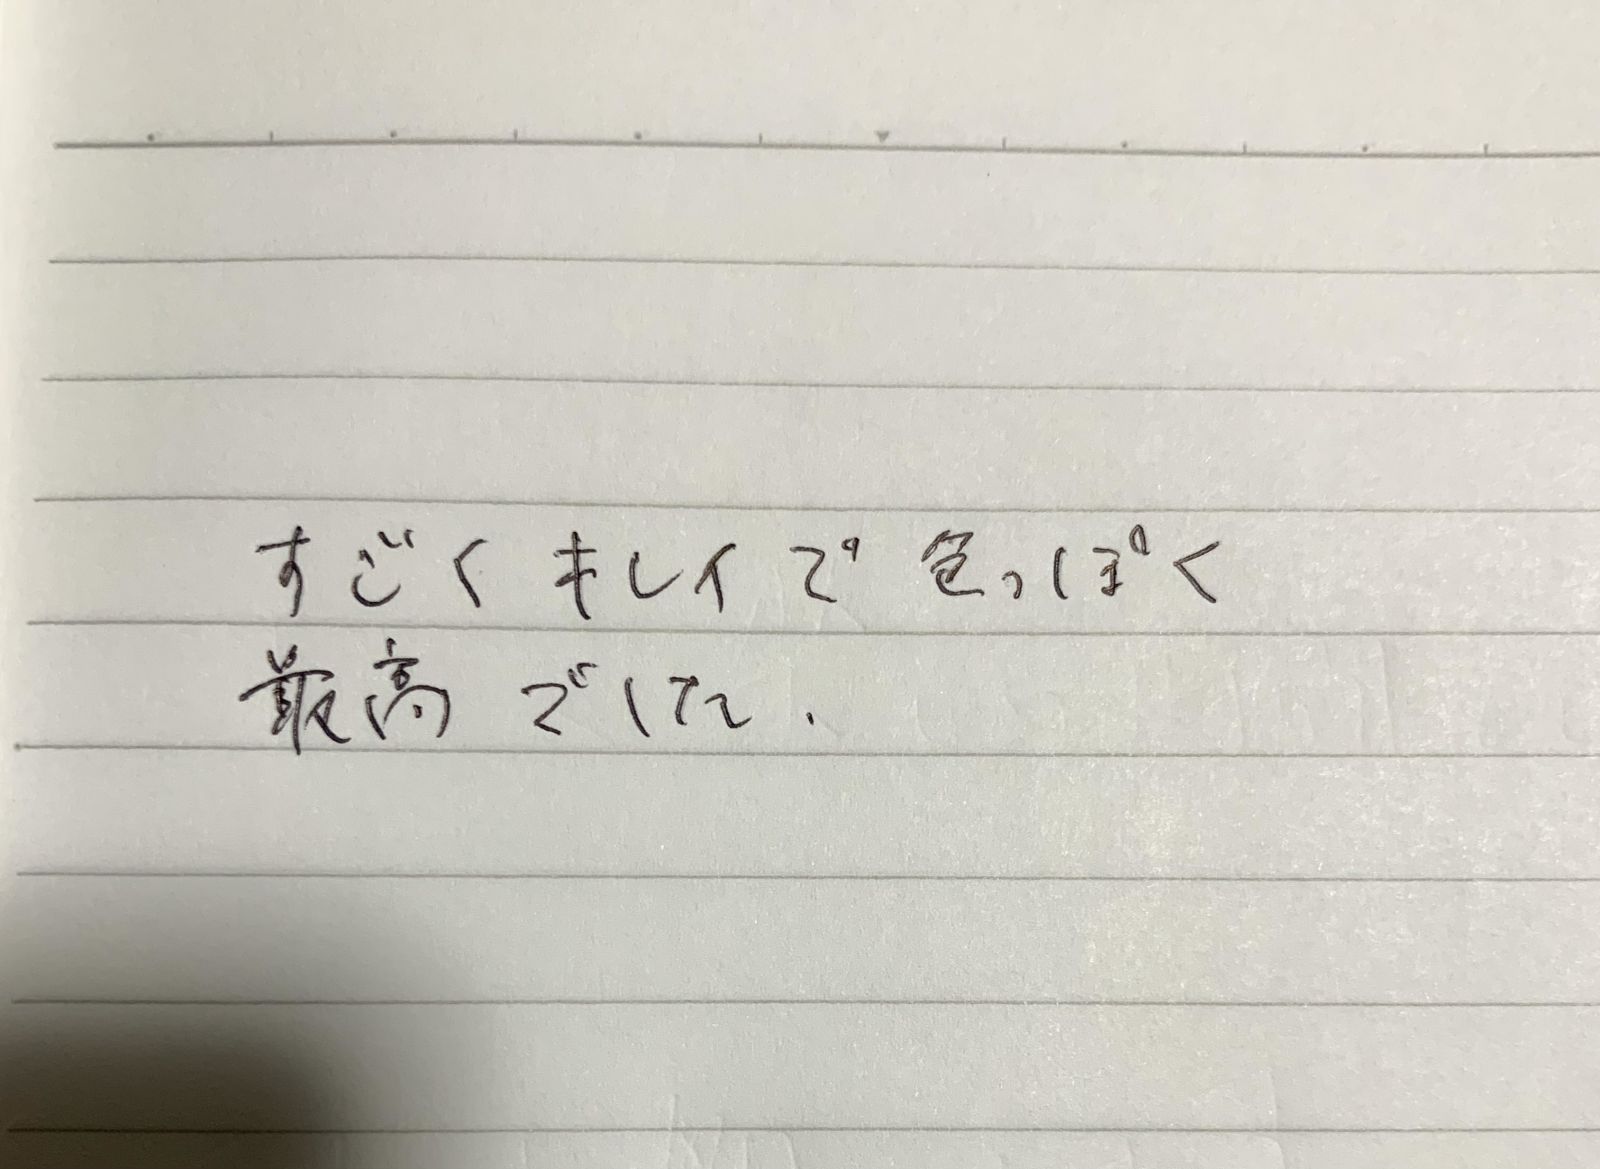 すごくキレイで色っぽく
最高でした.